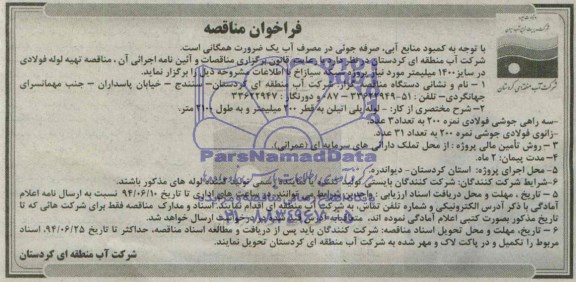 فراخوان مناقصه
با توجه به کمبود منابع آبی، صرفه جوئی در مصرف آب یک ضرورت همگانی است.
شرکت آب منطقه ای کردستان در نظر دارد با رعایت قانون برگزاری مناقصات و آئین نامه اجرائی آن ، مناقصه تهیه لوله فولادی
در سایز ۱۴۰۰ میلیمتر مورد نیاز پروژه سیازاخ با اطلاعات مشروحه ذیل را برگزار نماید.
۱ – نام و نشانی دستگاه مناقصه گزار: شرکت آب منطقه ای کردستان – سنندج – خیابان پاسداران – جنب مهمانسرای
جهانگردی– تلفن : ۵۱–۳۳۶۲۲۹۴۹–۰۸۷ و دورنگار : ۳۳۶۲۲۹۴۷
۲– شرح مختصری از کار: – لوله پلی اتیلن به قطر ۲۰۰ میلیمتر و به طول ۲۱۰۰ متر.
–سه راهی جوشی فولادی نمره ۲۰۰ به تعداد ۳ عدد.
–زانوی فولادی جوشی نمره ۲۰۰ به تعداد ۳۱ عدد.
۳ – روش تأمین مالی پروژه : از محل تملک دارائی های سرمایه ای (عمرانی).
۴– مدت پیمان: ۲ ماه.
۵– محل اجرای پروژه: استان کردستان– دیواندره.
۶–شرایط شرکت کنندگان: شرکت کنندگان بایستی تولید کننده یا نماینده رسمی تولید کننده لوله های مذکور باشند.
۵ – تاریخ ، مهلت و محل دریافت اسناد ارزیابی : واجدین شرایط می توانند در ساعت های اداری تا تاریخ ۹۴/۰۶/۱۰ نسبت به ارسال نامه اعلام
آمادگی با ذکر آدرس الکترونیکی و شماره تلفن تماس، به شرکت آب منطقه ای اقدام نمایند. اسناد و مدارک مناقصه فقط برای شرکت هائی که تا
تاریخ مذکور بصورت کتبی اعلام آمادگی نموده اند، ارسال خواهد شد.
۶ – تاریخ، مهلت و محل تحویل اسناد مناقصه: شرکت کنندگان باید پس از دریافت و مطالعه اسناد مناقصه، حداکثر تا تاریخ ۹۴/۰۶/۲۵ اسناد
مربوط را تکمیل و در پاکت لاک و مهر شده به شرکت آب منطقه ای کردستان تحویل نمایند.
شرکت آب منطقه ای کردستان
شرکت آب منطقه ای کردستان
ParsNamadData
۰۲۱–۸۸۳۴۹۶۷۰–۵